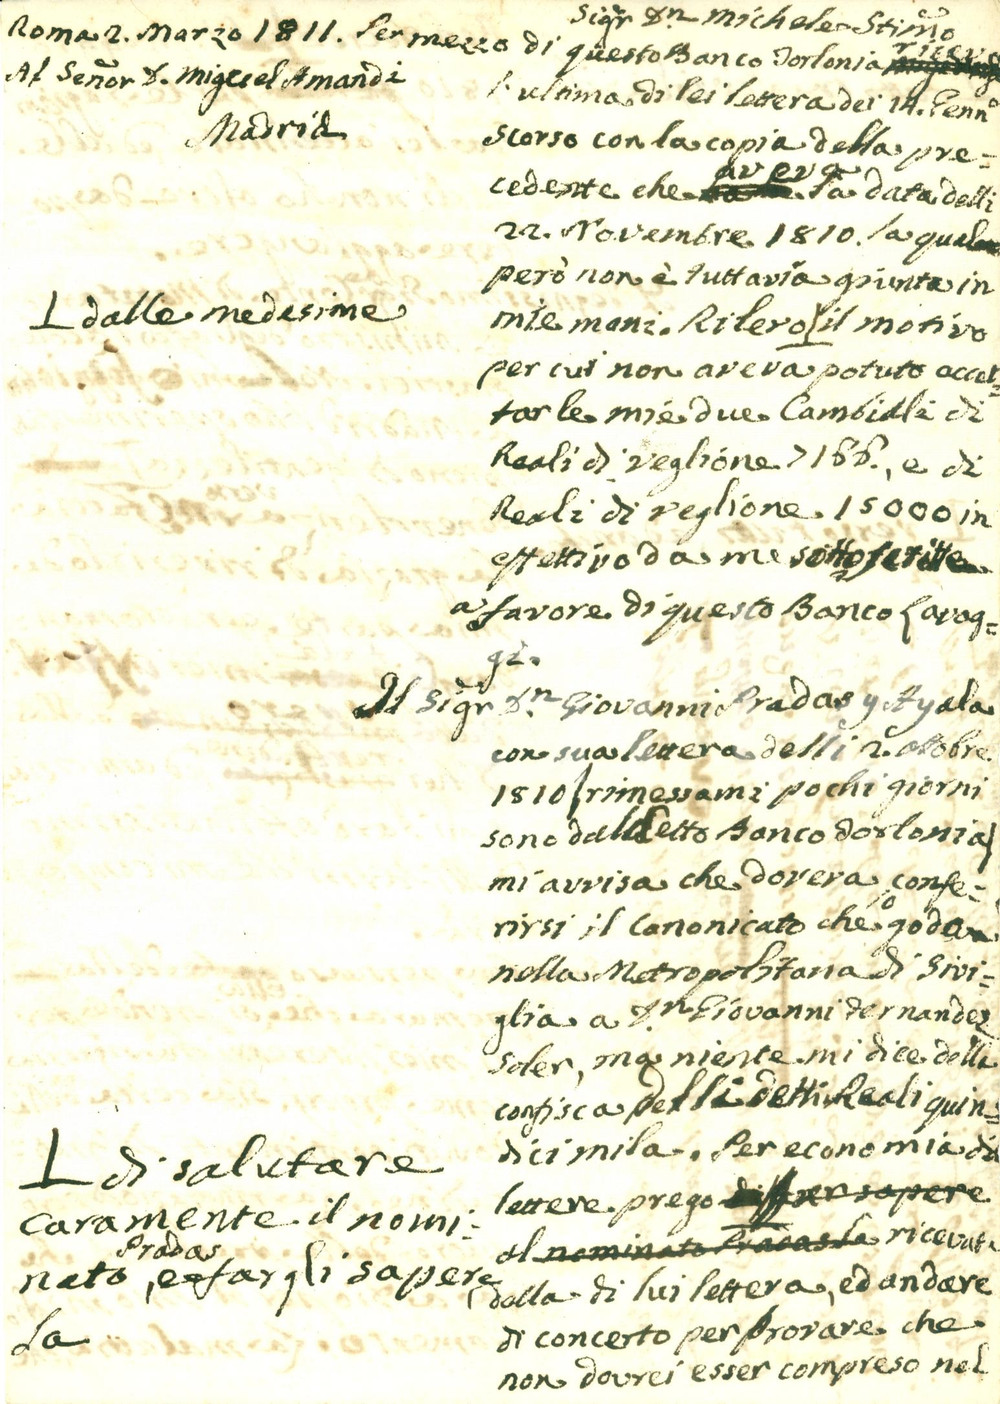 Roma 2. Marzo 1811. Per mezzo di
Al Señor D. Miguel Amandi
Madrid
Sigr Dn Michele Stimo
questo Banco Torlonia ricevo
l'ultima di lei lettera dei 14. Gennº
scorso con la copia della pre=
cedente che aveva la data delli
22. Novembre 1810. la quale
però non è tuttavia giunta in
mie mani. Rilevo il motivo
⊥ dalle medesime
per cui non aveva potuto accet=
tar le mie due Cambiali di
Reali di veglione 7166., e di
Reali di veglione 15000 in
effettivo da me sottoscritte
a favore di questo Banco Lavag=
gi.
Il Sigr Dn Giovanni Pradas y Ayala
con sua lettera delli 2. ottobre
1810 (rimessami pochi giorni
sono dal detto Banco Torlonia)
mi avvisa che doverà confe=
rirsi il Canonicato che godo
nella Metropolitana di Sivi=
glia a Dn Giovanni Fernandez
Soler, ma niente mi dice della
confisca delli detti Reali quin=
dici mila. Per economia di
lettere prego di far sapere
al nominato Pradas la ricevuta
⊥ di salutare
caramente il nomi=
nato Pradas, e fargli sapere
la
della di lui lettera, ed andare
di concerto per provare che
non dovrei esser compreso nel